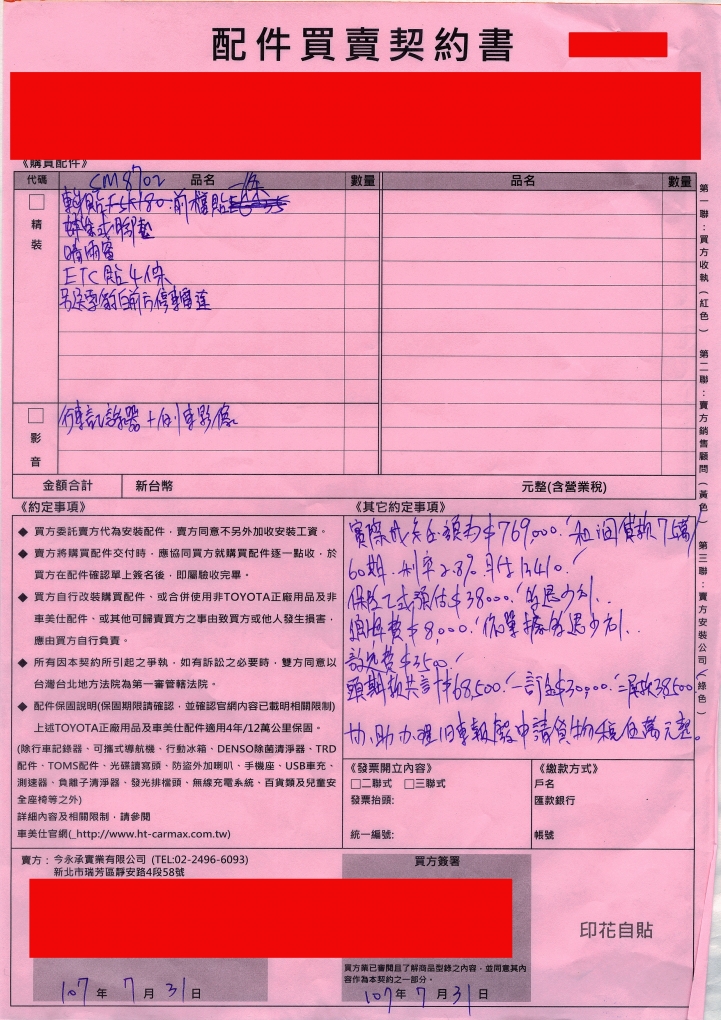 配件買賣契約書
《購買配件》
代碼 品名 數量 品名 數量
SM8702 一條
精裝
隔熱貼FSK180.前檔貼
蜂巢式腳墊
晴雨窗
ETC貼4條
前方停車雷達
影音
行車記錄器+倒車影像
金額合計 新台幣 元整(含營業稅)
《約定事項》
◆ 買方委託賣方代為安裝配件，賣方同意不另外加收安裝工資。
◆ 賣方將購買配件交付時，應協同買方就購買配件逐一點收，於
買方在配件確認單上簽名後，即屬驗收完畢。
◆ 買方自行改裝購買配件、或合併使用非TOYOTA正廠用品及非
車美仕配件、或其他可歸責買方之事由致買方或他人發生損害，
應由買方自行負責。
◆ 所有因本契約所引起之爭執，如有訴訟之必要時，雙方同意以
台灣台北地方法院為第一審管轄法院。
◆ 配件保固說明(保固期限請確認，並確認官網內容已載明相關限制)
上述TOYOTA正廠用品及車美仕配件適用4年/12萬公里保固。
(除行車記錄器、可攜式導航機、行動冰箱、DENSO除菌清淨器、TRD
配件、TOMS配件、光碟讀寫頭、防盜外加喇叭、手機座、USB車充、
測速器、負離子清淨器、發光排檔頭、無線充電系統、百貨類及兒童安
全座椅等之外)
詳細內容及相關限制，請參閱
車美仕官網(_http://www.ht-carmax.com.tw)
《其它約定事項》
實際成交金額為$769,000.' 和潤貸款75萬
60期.利率2.8% 月付13410.'
保險乙式預估$38000.'的多少刮..
領牌費$8,000.'依單據多退少刮..
設定費$3500.'
頭期款共計$68,500.' 一訂金$30,000.' 二尾款38,500
協助辦理旧車報廢申請貨物稅伍萬元整。
《發票開立內容》
□二聯式 □三聯式
發票抬頭:
統一編號:
《繳款方式》
戶名
匯款銀行
帳號
賣方：今永承實業有限公司 (TEL:02-2496-6093)
新北市瑞芳區靜安路4段58號
107年7月31日
買方簽署
買方業已審閱且了解商品型錄之內容，並同意其內
容作為本契約之一部分。
107年7月31日
印花自貼
第一聯：買方收執（紅色） 第二聯：賣方銷售顧問（黃色） 第三聯：賣方安裝公司（綠色）